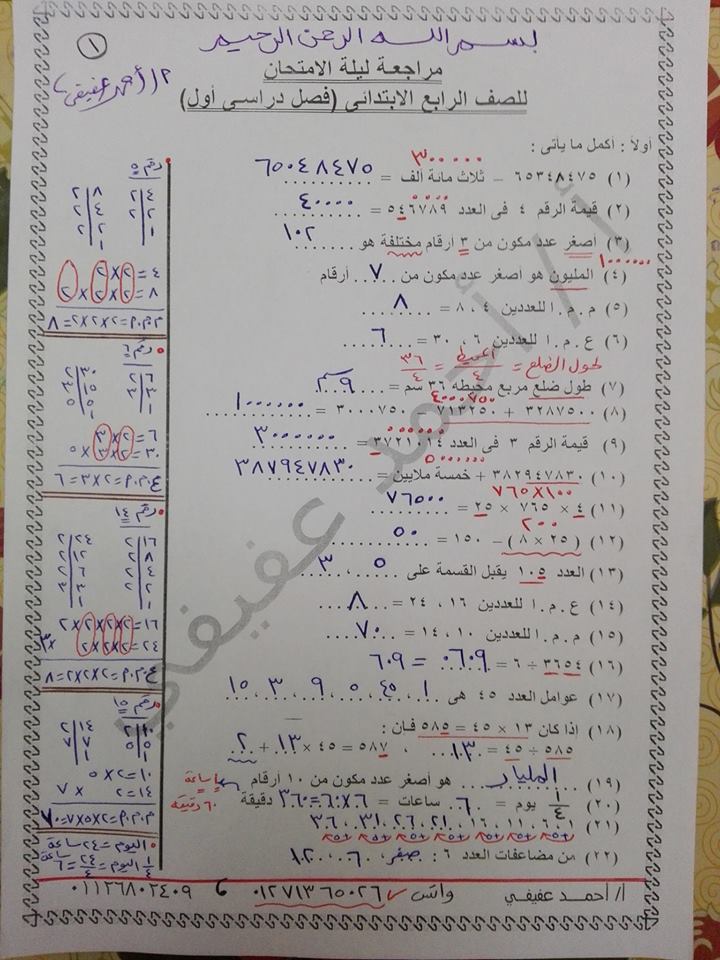 بسم الله الرحمن الرحيم
١
مراجعة ليلة الامتحان
للصف الرابع الابتدائى (فصل دراسى أول)
أ/أحمد عفيفي
أولاً : أكمل ما يأتى :
٣٠٠٠٠٠
(١) ٦٥٣٤٨٤٧٥ – ثلاث مائة ألف = ٦٥٠٤٨٤٧٥
(٢) قيمة الرقم ٤ فى العدد ٥٤٦٧٨٩ = ٤٠٠٠٠
(٣) أصغر عدد مكون من ٣ أرقام مختلفة هو ١٠٢
١٠٠٠٠٠٠
(٤) المليون هو أصغر عدد مكون من ٧ أرقام
(٥) م . م . ا للعددين ٤ ، ٨ = ٨
(٦) ع . م . ا للعددين ٦ ، ٣٠ = ٦
طول الضلع = المحيط / ٤ = ٣٦ / ٤
(٧) طول ضلع مربع محيطه ٣٦ سم = ٩ سم
٤٠٠٠٧٥٠
(٨) ٣٢٨٧٥٠٠ + ٧١٣٢٥٠ – ٣٠٠٠٧٥٠ = ١٠٠٠٠٠٠
(٩) قيمة الرقم ٣ فى العدد ٣٧٢١٠١٤ = ٣٠٠٠٠٠٠
٥٠٠٠٠٠٠
(١٠) ٣٨٢٩٤٧٨٣٠ + خمسة ملايين = ٣٨٧٩٤٧٨٣٠
٧٦٥×١٠٠
(١١) ٤ × ٧٦٥ × ٢٥ = ٧٦٥٠٠
٢٠٠
(١٢) (٢٥ × ٨) – ١٥٠ = ٥٠
(١٣) العدد ١٠٥ يقبل القسمة على ٥ ، ٣
(١٤) ع . م . ا للعددين ١٦ ، ٢٤ = ٨
(١٥) م . م . ا للعددين ١٠ ، ١٤ = ٧٠
(١٦) ٣٦٥٤ ÷ ٦ = ٠٦٠٩ = ٦٠٩
(١٧) عوامل العدد ٤٥ هى ١ ، ٤٥ ، ٥ ، ٩ ، ٣ ، ١٥
(١٨) إذا كان ١٣ × ٤٥ = ٥٨٥ فان :
٥٨٥ ÷ ٤٥ = ١٣ ، ٥٨٧ = ٤٥ × ١٣ + ٢
(١٩) المليار هو أصغر عدد مكون من ١٠ أرقام
(٢٠) ١/٤ يوم = ٦ ساعات = ٦×٦٠=٣٦٠ دقيقة
ساعة = ٦٠ دقيقة
(٢١) ١ ، ٦ ، ١١ ، ١٦ ، ٢١ ، ٢٦ ، ٣١ ، ٣٦
+٥ +٥ +٥ +٥ +٥ +٥ +٥
(٢٢) من مضاعفات العدد ٦ : صفر ، ٦ ، ١٢
أ/ أحمد عفيفي واتس ٠١٢٧١٣٦٥٠٢٦ ، ٠١١٢٦٨٠٢٤٠٩
رقم ٥
٤ ٢ ٨ ٢
٢ ٢ ٤ ٢
١ ٢ ٢
١
٤ = ٢×٢
٨ = ٢×٢×٢
م.م.ا = ٢×٢×٢ = ٨
رقم ٦
٦ ٢ ٣٠ ٢
٣ ٣ ١٥ ٣
١ ٥ ٥
١
٦ = ٢×٣
٣٠ = ٢×٣×٥
ع.م.ا = ٢×٣ = ٦
رقم ١٤
١٦ ٢ ٢٤ ٢
٨ ٢ ١٢ ٢
٤ ٢ ٦ ٢
٢ ٢ ٣ ٣
١ ١
١٦ = ٢×٢×٢×٢
٢٤ = ٢×٢×٢×٣
ع.م.ا = ٢×٢×٢ = ٨
رقم ١٥
١٠ ٢ ١٤ ٢
٥ ٥ ٧ ٧
١ ١
١٠ = ٢×٥
١٤ = ٢ × ٧
م.م.ا = ٢×٥×٧ = ٧٠
اليوم = ٢٤ ساعة
١/٤ اليوم = ٢٤/٤ = ٦ ساعة
أ / أحمد عفيفي